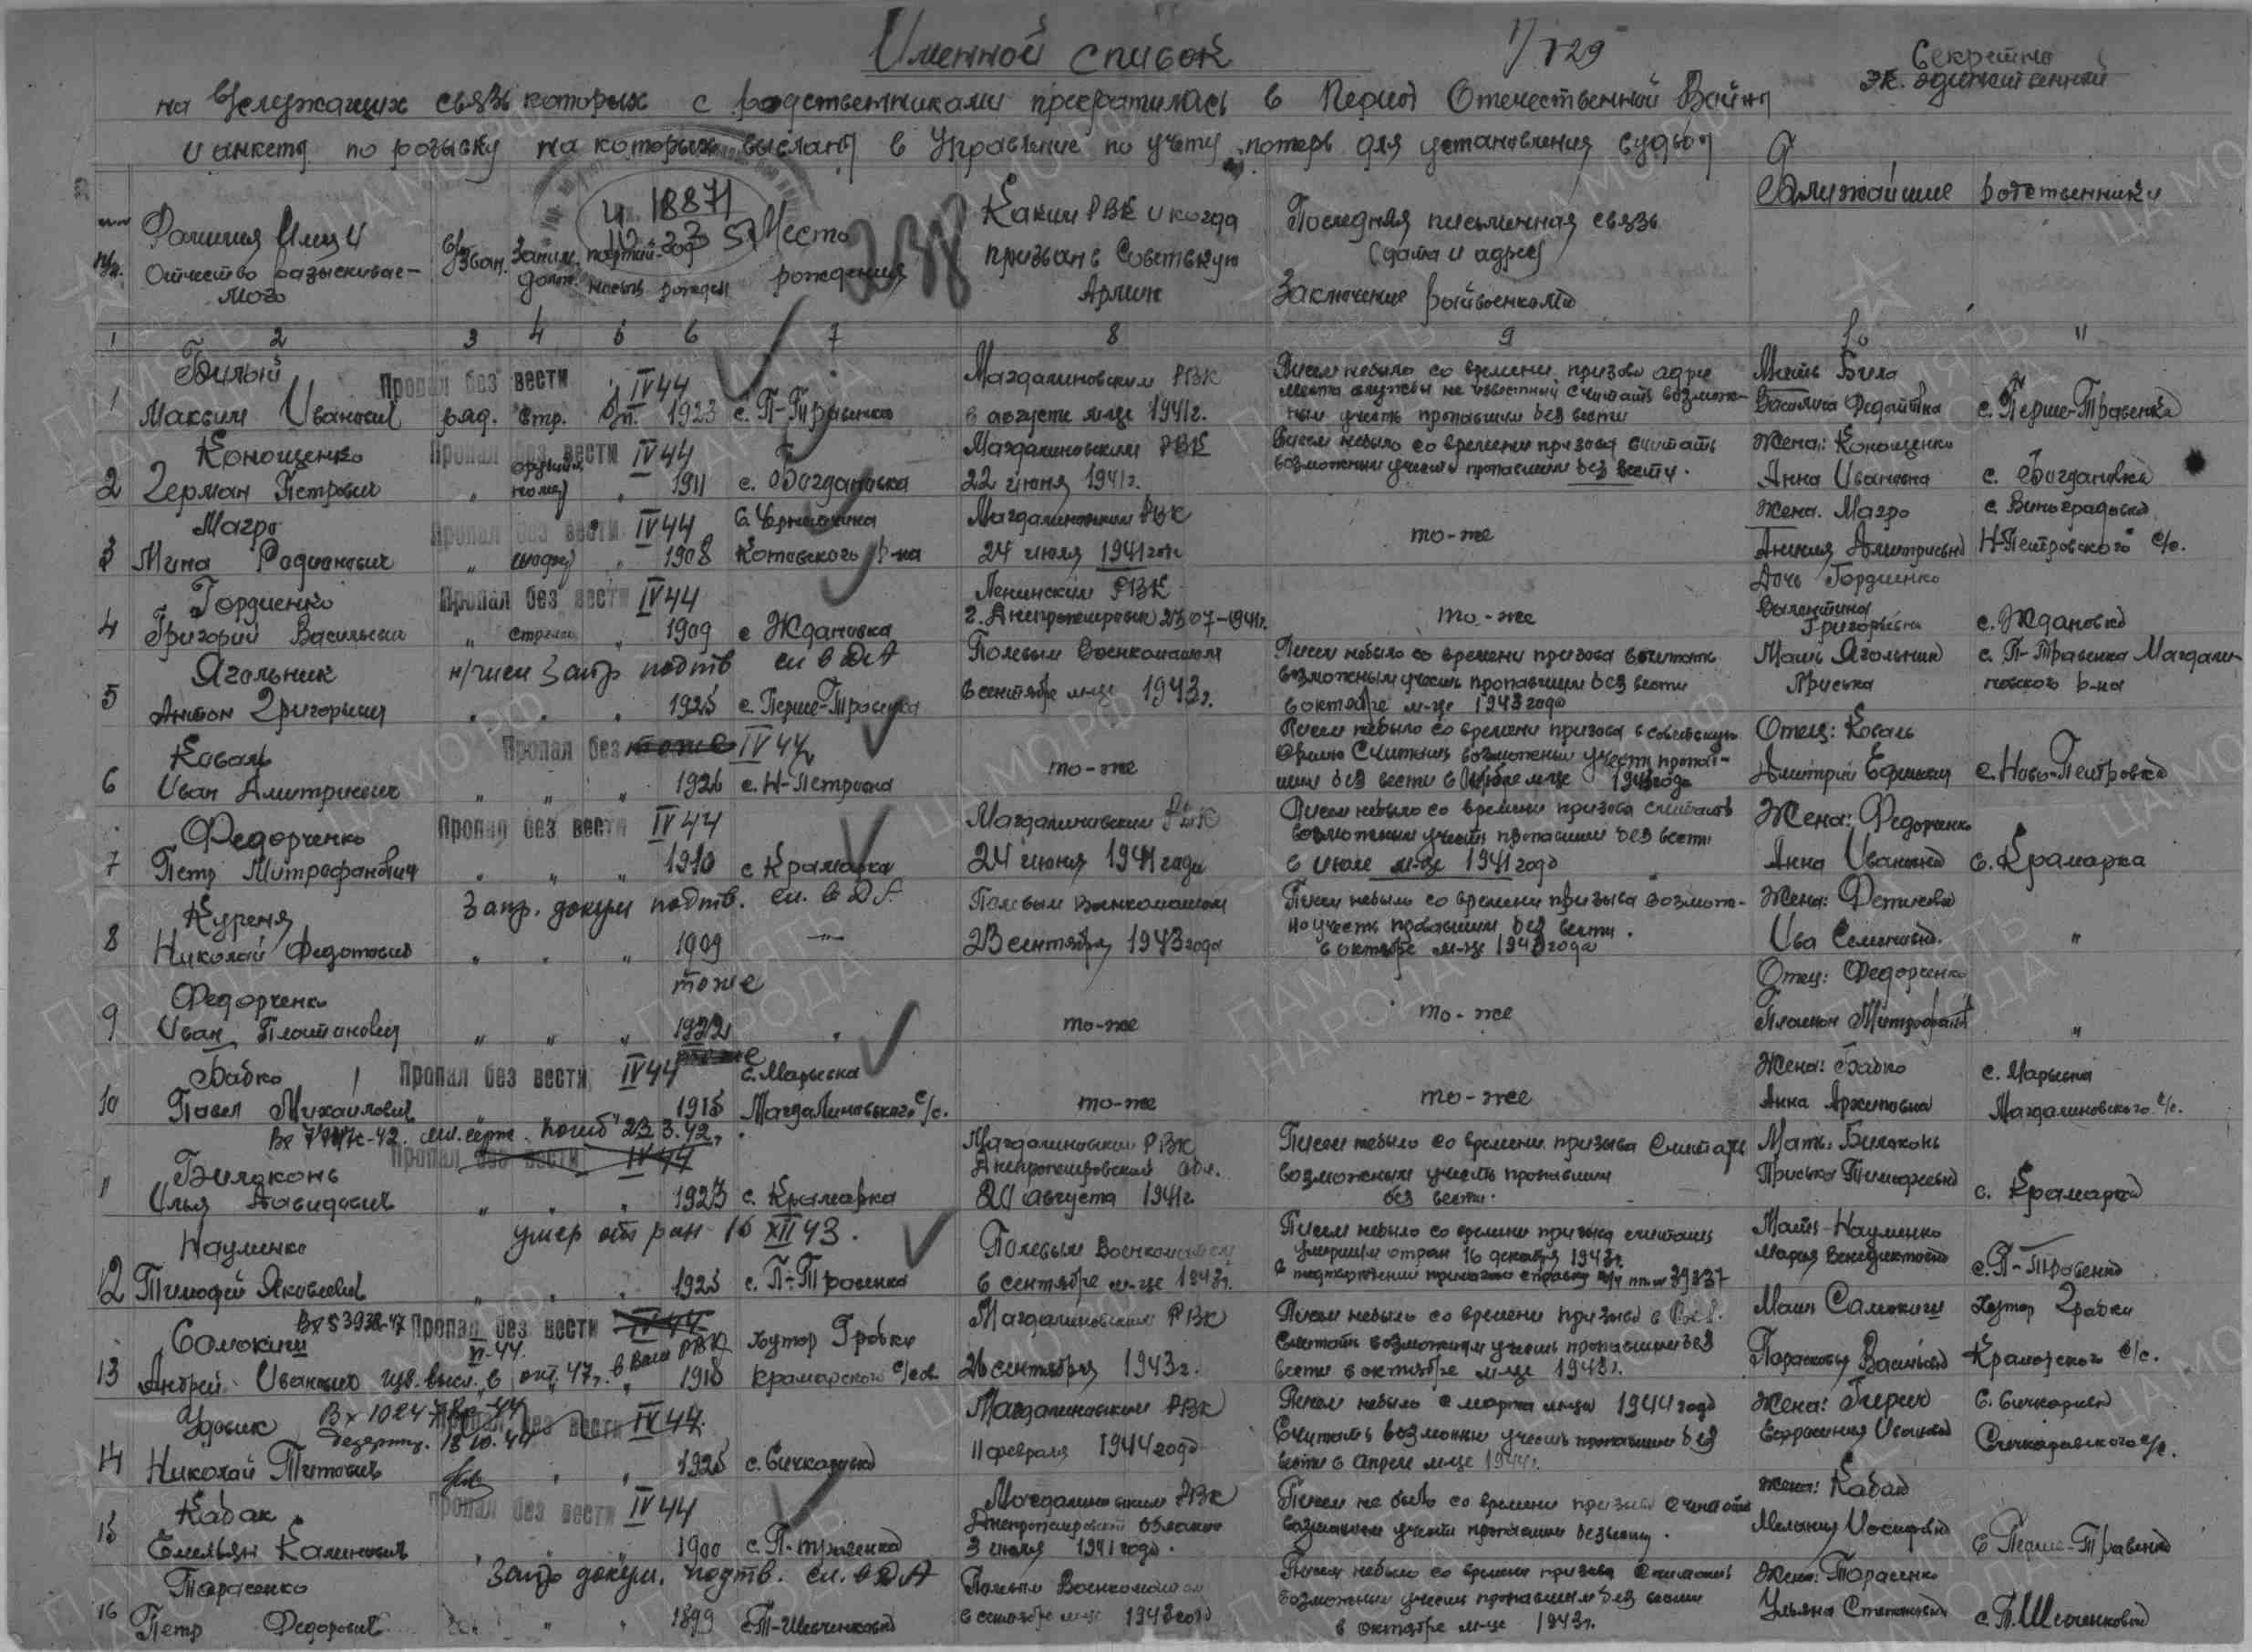 Именной список
1/129
Секретно
эк. единственный
на в/служащих связь которых с родственниками прекратилась в период Отечественной Войны
и анкеты по розыску на которых высланы в Управление по учету потерь для установления судьбы
18871
238
Фамилия Имя и
Отчество разыскивае-
мого
В/зван.
Заним.
долж.
партий-
ность
год
рожден
Место
рождения
Каким РВК и когда
призван в Советскую
Армию
Последняя письменная связь
(дата и адрес)
Заключение райвоенкома
Ближайшие родственники
1 2 3 4 5 6 7 8 9 10 11
Билый
Пропал без вести IV 44
1 Максим Иванович ряд. стр. б/п. 1923 с. П-Травенка
Магдалиновским РВК
в августе м-це 1941г.
Писем небыло со времени призова адрес
места службы не известный считать возмож-
ным учесть пропавшим без вести
Мать Била
Василиса Федотовна с. Перше-Травенка
Конощенко
Пропал без вести IV 44
2 Герман Петрович " " 1911 с. Богдановка
Магдалиновским РВК
22 июня 1941г.
Писем небыло со времени призова считать
возможным учесть пропавшим без вести.
Жена: Конощенко
Анна Ивановна с. Богдановка
Магро
Пропал без вести IV 44
3 Мина Родионович " " 1908 Котовского р-на
Магдалиновским РВК
24 июля 1941 года
то-же
Жена. Магро
с. Виноградовка
Н-Петровского с/с.
Гордиенко
Пропал без вести IV 44
4 Григорий Васильевич " стрелок " 1909 с Ждановка
Ленинским РВК
г. Днепропетровск 23/07-1941г.
то-же
Дочь Гордиенко
Валентина
Григорьевна с. Ждановка
Ягольник
н/числ запр подтв сл. в ДА
5 Антон Григорьевич " " " 1925 с. Перше-Травенка
Полевым Военкоматом
в сентябре м-це 1943г.
Писем небыло со времени призова считать
возможным учесть пропавшим без вести
в октябре м-це 1943 года
Мать Ягольник
Приська
с. П-Травенка Магдали-
новского р-на
Коваль
Пропал без IV 44
6 Иван Дмитриевич " " " 1926 с. Н-Петровка
то-же
Писем небыло со времени призова в советскую
армию Считать возможным учесть пропав-
шим без вести в Октябре м-це 1943 года
Отец: Коваль
Дмитрий с. Ново-Петровка
Федорченко
Пропал без вести IV 44
7 Петр Митрофанович " " " 1910 с Крамарка
Магдалиновским РВК
24 июня 1941 года
Писем небыло со времени призова считать
возможным учесть пропавшим без вести
в июле м-це 1941 года
Жена: Федорченко
Анна Ивановна с. Крамарка
Куреня
Запр. докум подтв. сл. в ДА
8 Николай Федотович " " " 1909 -"-
Полевым Военкоматом
23 сентября 1943 года
Писем небыло со времени призыва возмож-
но учесть пропавшим без вести.
в октябре м-це 1943 года
Жена:
Ива Семеновна. "
Федорченко
тоже
9 Иван Платонович " " " 1922 "
то-же
то-же
Отец: Федорченко
Платон "
Бабко
Пропал без вести IV 44
с. Марьевка
10 Павел Михайлович " 1915 Магдалиновського с/с.
то-же
то-же
Жена: Бабко
Анна Архиповна
с. Марьевка
Магдалиновского с/с.
мл. серж. погиб 23.3.42.
Пропал без вести IV 44
Билоконь
11 Илья Давидович " " " 1923 с. Крамарка
Магдалиновским РВК
Днепропетровской обл.
20 августа 1941г
Писем небыло со времени призыва Считать
возможным учесть пропавшим
без вести.
Мать: Билоконь
Приська Тимофеевна с. Крамарка
Науменко
умер от ран 16 XII 43.
12 Тимофей Яковлевич " " " 1925 с. П-Травенка
Полевым Военкоматом
в сентябре м-це 1943г.
Писем небыло со времени призыва считать
умершим от ран 16 декабря 1943г.
39337
Мать Науменко
Марья Венедиктовна с. П-Травенка
Самокиш
Пропал без вести IV 44
II-44.
13 Андрей Иванович изв. высл. в окт. 47г. в Ваш РВК 1918
хутор Грабки
Крамарского с/сов.
Магдалиновским РВК
26 сентября 1943г.
Писем небыло со времени призыва
Считать возможным учесть пропавшим без
вести в октябре м-це 1943г.
Мать Самокиш
Парасковья Васильевна
хутор Грабки
Крамарского с/с.
Удовик
Пропал без вести IV 44.
дезертир. 18.10.44
14 Николай Титович " " 1925 с. Бичкаровка
Магдалиновским РВК
11 февраля 1944 года
Писем небыло с марта м-ца 1944 года
Считать возможны учесть пропавшим без
вести в Апреле м-це 1944г.
Жена:
Ефросиния Ивановна
Кабак
Пропал без вести IV 44
15 Емельян Калинович " " " 1900 с. П-Травенка
Магдалиновским РВК
Днепропетровской области
3 июля 1941 года.
Писем не было со времени призыва считать
возможным учесть пропавшим без вести.
Жена: Кабак
Мелания Иосифовна с. Перше-Травенка
Тарасенко
Запр докум. подтв. сл. в ДА
16 Петр Федорович " " 1899 с Т-Шевченковка
Полевым Военкоматом
в сентябре м-це 1943 года
Писем небыло со времени призыва Считать
возможным учесть пропавшим без вести
в октябре м-це 1943г.
Жена: Тарасенко
Ульяна Степановна с. Т. Шевченковка